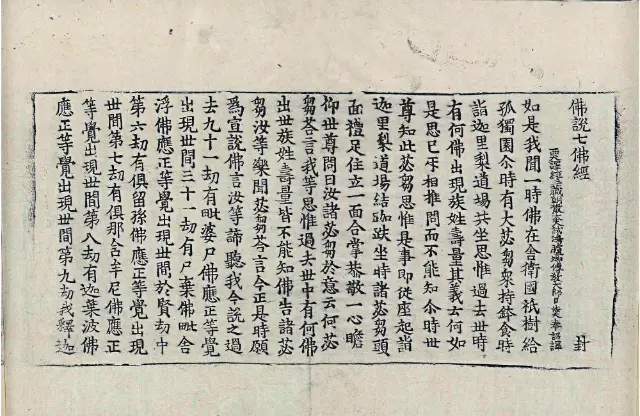 佛說七佛經 封
西譯經三藏朝散大夫試鴻臚卿傳教大師臣法天奉詔譯
如是我聞一時佛在舍衛國祇樹給
孤獨園尒時有大苾芻衆持鉢食時
詣迦里梨道場共坐思惟過去世時
有何佛出現族姓壽量其義云何如
是思已㸦相推問而不能知尒時世
尊知此苾芻思惟是事即從座起詣
迦里梨道場結跏趺坐時諸苾芻頭
面禮足住立一面合掌恭敬一心瞻
仰世尊問曰汝諸苾芻於意云何苾
芻荅言我等思惟過去世中有何佛
出世族姓壽量皆不能知佛告諸苾
芻汝等樂聞苾芻荅言今正是時願
爲宣說佛言汝等諦聽我今說之過
去九十一劫有毗婆尸佛應正等覺
出現世間三十一劫有尸棄佛毗舍
浮佛應正等覺出現世間於賢劫中
第六劫有俱留孫佛應正等覺出現
世間第七劫有俱那含牟尼佛應正
等覺出現世間第八劫有迦葉波佛
應正等覺出現世間第九劫我釋迦